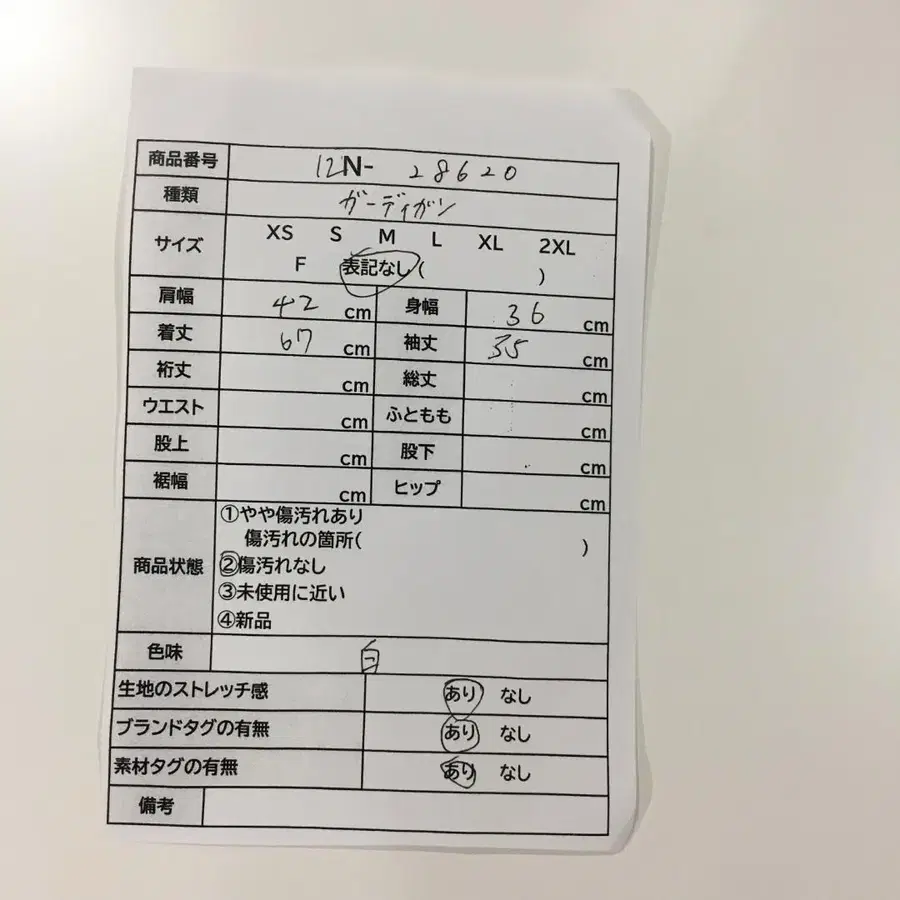 商品番号 12N- 28620
種類 ガーディガン
サイズ XS S M L XL 2XL
F 表記なし( )
肩幅 42 cm 身幅 36 cm
着丈 67 cm 袖丈 35 cm
裄丈 cm 総丈 cm
ウエスト cm ふともも cm
股上 cm 股下 cm
裾幅 cm ヒップ cm
商品状態 ①やや傷汚れあり
傷汚れの箇所( )
②傷汚れなし
③未使用に近い
④新品
色味 白
生地のストレッチ感 あり なし
ブランドタグの有無 あり なし
素材タグの有無 あり なし
備考